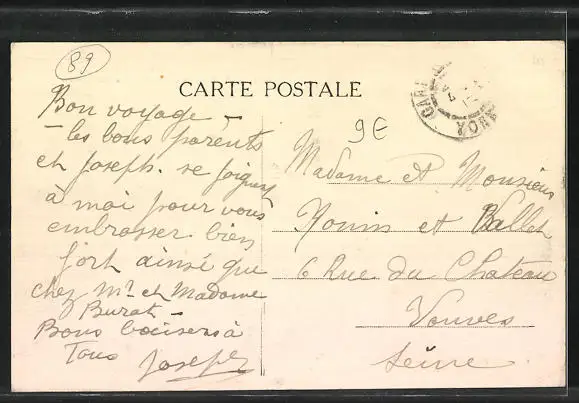 89
CARTE POSTALE
9E
Bon voyage -
- les bons parents
et Joseph. se joignent
à moi pour vous
embrasser bien
fort ainsi que
chez Mr et Madame
Burat -
Bons baisers à
Tous Joseph
Madame et Monsieur
et Ballet
6 Rue du Chateau
Vanves
Seine